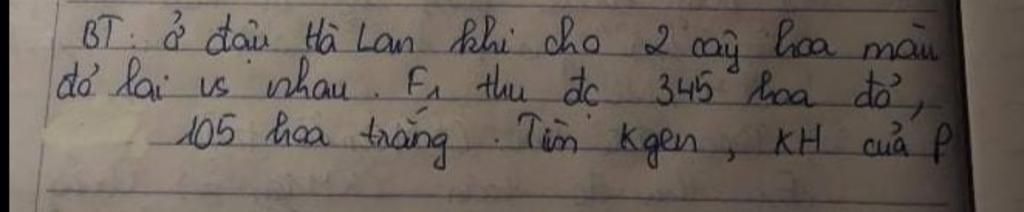 BT: ở đậu Hà Lan khi cho 2 cây hoa màu
đỏ lai vs nhau. F1 thu đc 345 hoa đỏ,
105 hoa trắng. Tìm Kgen, KH của P